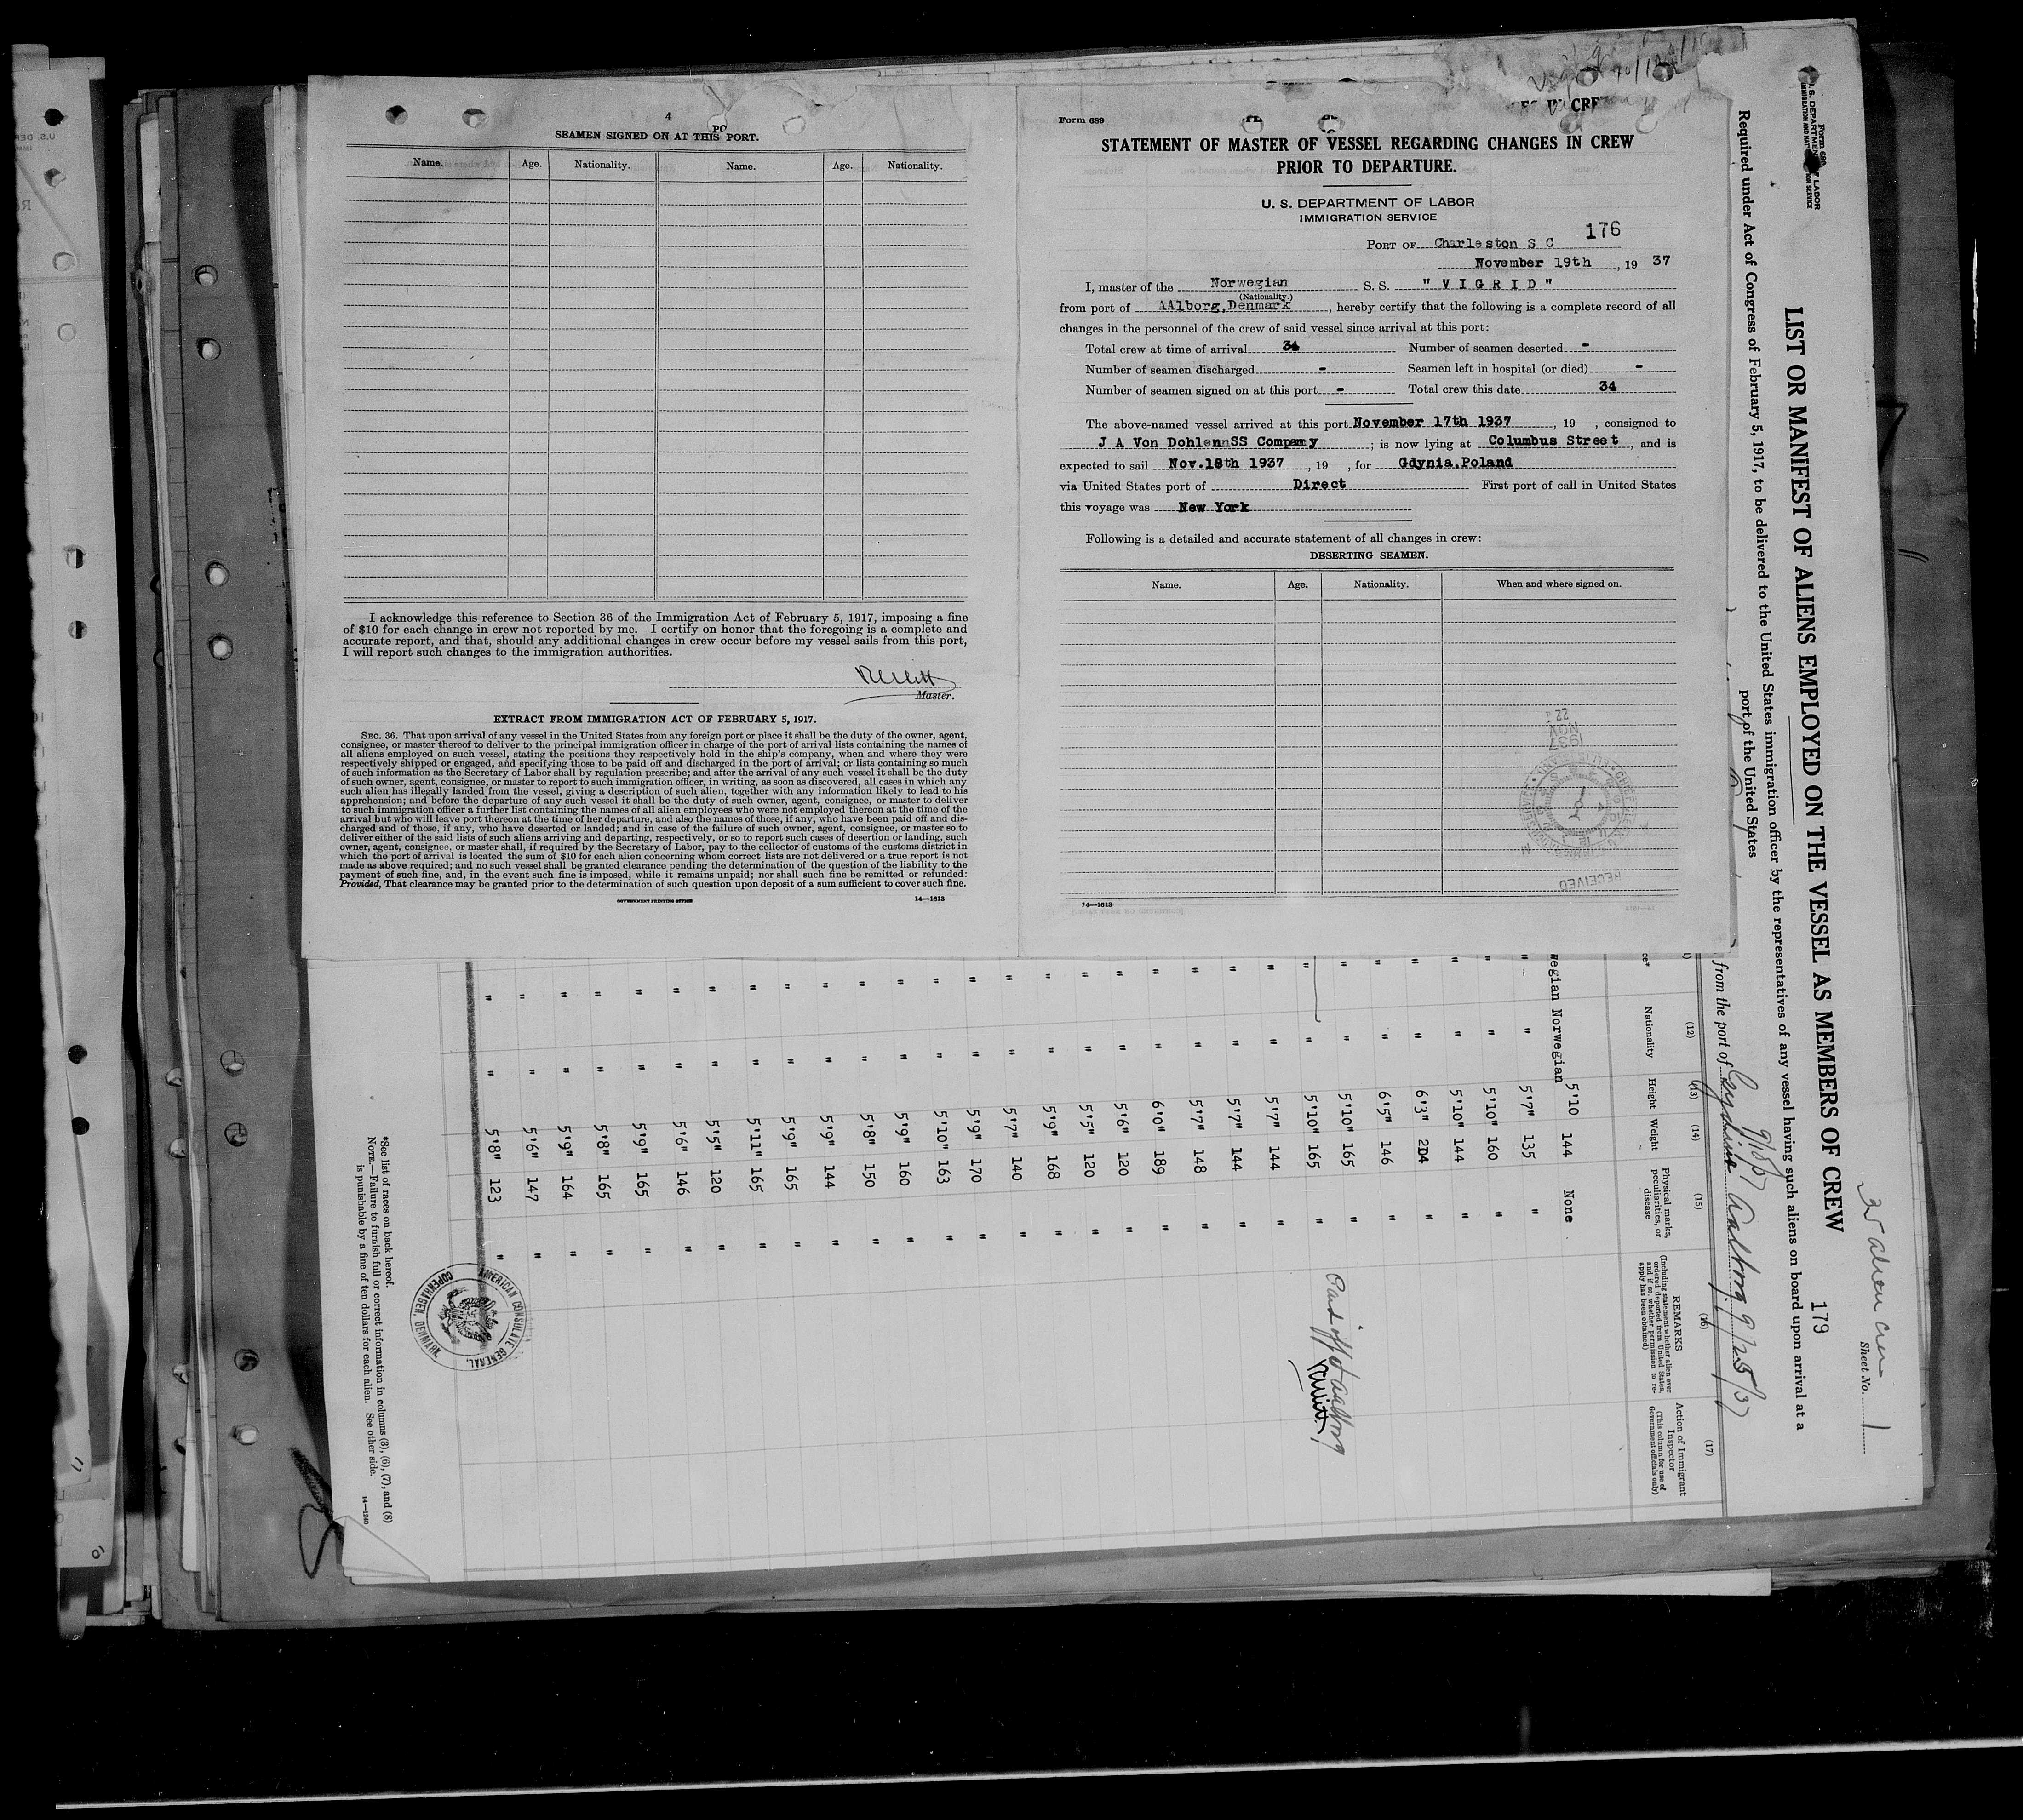 4
SEAMEN SIGNED ON AT THIS PORT.
Name. Age. Nationality. Name. Age. Nationality.
I acknowledge this reference to Section 36 of the Immigration Act of February 5, 1917, imposing a fine
of $10 for each change in crew not reported by me. I certify on honor that the foregoing is a complete and
accurate report, and that, should any additional changes in crew occur before my vessel sails from this port,
I will report such changes to the immigration authorities.
Master.
EXTRACT FROM IMMIGRATION ACT OF FEBRUARY 5, 1917.
SEC. 36. That upon arrival of any vessel in the United States from any foreign port or place it shall be the duty of the owner, agent,
consignee, or master thereof to deliver to the principal immigration officer in charge of the port of arrival lists containing the names of
all aliens employed on such vessel, stating the positions they respectively hold in the ship's company, when and where they were
respectively shipped or engaged, and specifying those to be paid off and discharged in the port of arrival; or lists containing so much
of such information as the Secretary of Labor shall by regulation prescribe; and after the arrival of any such vessel it shall be the duty
of such owner, agent, consignee, or master to report to such immigration officer, in writing, as soon as discovered, all cases in which any
such alien has illegally landed from the vessel, giving a description of such alien, together with any information likely to lead to his
apprehension; and before the departure of any such vessel it shall be the duty of such owner, agent, consignee, or master to deliver
to such immigration officer a further list containing the names of all alien employees who were not employed thereon at the time of the
arrival but who will leave port thereon at the time of her departure, and also the names of those, if any, who have been paid off and dis-
charged and of those, if any, who have deserted or landed; and in case of the failure of such owner, agent, consignee, or master so to
deliver either of the said lists of such aliens arriving and departing, respectively, or so to report such cases of desertion or landing, such
owner, agent, consignee, or master shall, if required by the Secretary of Labor, pay to the collector of customs of the customs district in
which the port of arrival is located the sum of $10 for each alien concerning whom correct lists are not delivered or a true report is not
made as above required; and no such vessel shall be granted clearance pending the determination of the question of the liability to the
payment of such fine, and, in the event such fine is imposed, while it remains unpaid; nor shall such fine be remitted or refunded:
Provided, That clearance may be granted prior to the determination of such question upon deposit of a sum sufficient to cover such fine.
GOVERNMENT PRINTING OFFICE 14—1613
Form 689
STATEMENT OF MASTER OF VESSEL REGARDING CHANGES IN CREW
PRIOR TO DEPARTURE.
U. S. DEPARTMENT OF LABOR
IMMIGRATION SERVICE
176
PORT OF Charleston S C
November 19th, 19 37
I, master of the Norwegian S. S. "VIGRID"
(Nationality.)
from port of AAlborg,Denmark, hereby certify that the following is a complete record of all
changes in the personnel of the crew of said vessel since arrival at this port:
Total crew at time of arrival 34 Number of seamen deserted -
Number of seamen discharged - Seamen left in hospital (or died) -
Number of seamen signed on at this port - Total crew this date 34
The above-named vessel arrived at this port November 17th 1937, 19 , consigned to
J A Von DohlennSS Company ; is now lying at Columbus Street, and is
expected to sail Nov.18th 1937, 19 , for Gdynia,Poland
via United States port of Direct First port of call in United States
this voyage was New York
Following is a detailed and accurate statement of all changes in crew:
DESERTING SEAMEN.
Name. Age. Nationality. When and where signed on.
1937
NOV
22
RECEIVED
14—1613
Form 689
U. S. DEPARTMENT OF LABOR
IMMIGRATION AND NATURALIZATION SERVICE
Sheet No. 1
LIST OR MANIFEST OF ALIENS EMPLOYED ON THE VESSEL AS MEMBERS OF CREW 179
Required under Act of Congress of February 5, 1917, to be delivered to the United States immigration officer by the representatives of any vessel having such aliens on board upon arrival at a
port of the United States
from the port of Aalborg 9/25/37
(12) (13) (14) (15) (16) (17)
Nationality Height Weight Physical marks, peculiarities, or disease
REMARKS
(Including statement whether alien ever ordered deported from United States, and if so, whether permission to re-apply has been obtained)
Action of Immigrant Inspector
(This column for use of Government officials only)
wegian Norwegian 5'10 144 None
" " 5'7" 135 "
" " 5'10" 160 "
" " 5'10" 144 "
" " 6'3" 204 "
" " 6'5" 146 "
" " 5'10" 165 "
" " 5'10" 165 "
" " 5'7" 144 "
" " 5'7" 144 "
" " 5'7" 148 "
" " 6'0" 189 "
" " 5'6" 120 "
" " 5'5" 120 "
" " 5'9" 168 "
" " 5'7" 140 "
" " 5'9" 170 "
" " 5'10" 163 "
" " 5'9" 160 "
" " 5'8" 150 "
" " 5'9" 144 "
" " 5'9" 165 "
" " 5'11" 165 "
" " 5'5" 120 "
" " 5'6" 146 "
" " 5'9" 165 "
" " 5'8" 165 "
" " 5'9" 164 "
" " 5'6" 147 "
" " 5'8" 123 "
AMERICAN CONSULATE GENERAL,
COPENHAGEN, DENMARK.
*See list of races on back hereof.
NOTE.—Failure to furnish full or correct information in columns (3), (6), (7), and (8)
is punishable by a fine of ten dollars for each alien. See other side.
14—1240